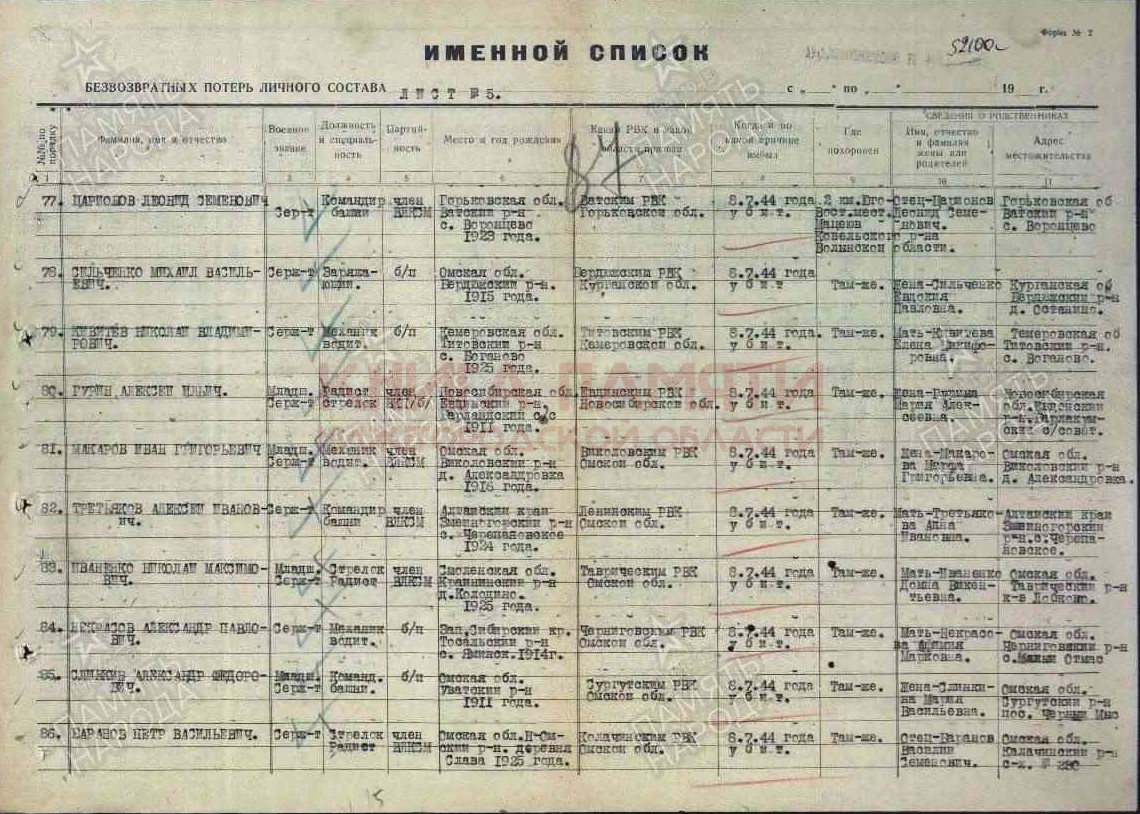 Форма № 2
52100
ИМЕННОЙ СПИСОК
БЕЗВОЗВРАТНЫХ ПОТЕРЬ ЛИЧНОГО СОСТАВА ЛИСТ № 5. с „ “ по „ “ 19 г.
СВЕДЕНИЯ О РОДСТВЕННИКАХ
№№ по порядку | Фамилия, имя и отчество | Военное звание | Должность и специальность | Партийность | Место и год рождения | Каким РВК и какой области призван | Когда и по какой причине выбыл | Где похоронен | Имя, отчество и фамилия жены или родителей | Адрес местожительства
1 2 3 4 5 6 7 8 9 10 11
87
77. ЛЕОНИД СЕМЕНОВИЧ Командир член Горьковская обл. Ватским РВК 8.7.44 года 2 км.Юго- Отец- Горьковская об
Сер-т башни ВЛКСМ Ватский р-н Горьковской обл. у б и т. Вост.мест. Леонид Семе- Ватский р-н
с. Воронцево Мацеюв нович. с. Воронцево
1923 года. Ковельского р-на
Волынской области.
78. СИЛЬЧЕНКО МИХАИЛ ВАСИЛЬ- Серж-т Заряжа- б/п Омская обл. Бердюжским РВК 8.7.44 года
ЕВИЧ. ющий. Бердюжский р-н. Курганской обл. у б и т Там-же. Жена-Сильченко Курганская об
1915 года. Евдокия Бердюжский р-н
Павловна. д. Останино.
79. НИКОЛАЙ ВЛАДИМИ- Серж-т Механик б/п Кемеровская обл. Титовским РВК 8.7.44 года. Там-же. Мать- Кемеровская об
РОВИЧ. водит. Титовский р-н Кемеровской обл. у б и т. Елена Никифо- Титовский р-н.
с. Боганово ровна. с. Боганово.
1925 года
80. ГУРИН АЛЕКСЕЙ ИЛЬИЧ. Младш. Радист член Новосибирская обл. РВК 8.7.44 года Там-же. Жена-Гурина Новосибирская
Серж-т стрелок ВКП/б/ р-н. Новосибирской обл. у б и т. Мария Алек- обл.
с/с сеевна.
1911 года. с/совет.
81. МАКАРОВ ИВАН ГРИГОРЬЕВИЧ Младш. Механик член Омская обл. Викуловским РВК 8.7.44 года Там-же. Жена-Макаро- Омская обл.
Серж-т водит. ВЛКСМ Викуловский р-н Омской обл. у б и т. ва Марфа Викуловский р-н
д. Александровка Григорьевна. д. Александровка.
1916 года.
82. ТРЕТЬЯКОВ АЛЕКСЕЙ ИВАНОВ- Серж-т Командир член Алтайский край Ленинским РВК 8.7.44 года Там-же. Мать-Третьяко- Алтайский край
ИЧ. башни ВЛКСМ Змеиногорский р-н Омской обл. у б и т. ва Анна Змеиногорский
с. Черепановское Ивановна. р-н.с.Черепа-
1924 года. новское.
83. ИВАНЕНКО НИКОЛАЙ МАКСИМО- Младш. Стрелок член Смоленская обл. Таврическим РВК 8.7.44 года Там-же. Мать-Иваненко Омская обл.
ВИЧ. Серж-т Радист ВЛКСМ р-н Омской обл. у б и т. Домна Викен- Таврический р-н
д.Колодино. тьевна.
1925 года.
84. НЕКРАСОВ АЛЕКСАНДР ПАВЛО- Серж-т Механик б/п Зап.Сибирский кр. Черниговским РВК 8.7.44 года Там-же. Мать-Некрасо- Омская обл.
ВИЧ. водит. Тосальский р-н Омской обл. у б и т. ва Черниговский р-н
с. Яминск.1914г. Марковна. с.Малый
85. АЛЕКСАНДР ФЕДОРО- Младш. Команд. б/п Омская обл. Сургутским РВК 8.7.44 года Там-же. Жена-Слинки- Омская обл.
ВИЧ. Серж-т башни. Уватский р-н Омской обл. у б и т. на Мария Сургутский р-н
1911 года. Васильевна. пос. Черный Мыс
86. БАРАНОВ ПЕТР ВАСИЛЬЕВИЧ. Серж-т Стрелок член Омская обл.Н-Ом- Калачинским РВК 8.7.44 года Там-же. Отец-Баранов Омская обл.
Радист ВЛКСМ ский р-н. деревня Омской обл. у б и т. Василий Калачинский р-н
Слава 1925 года. Семенович. с-х. № 280
КНИГА ПАМЯТИ
НИЖЕГОРОДСКОЙ ОБЛАСТИ
ПАМЯТЬ НАРОДА